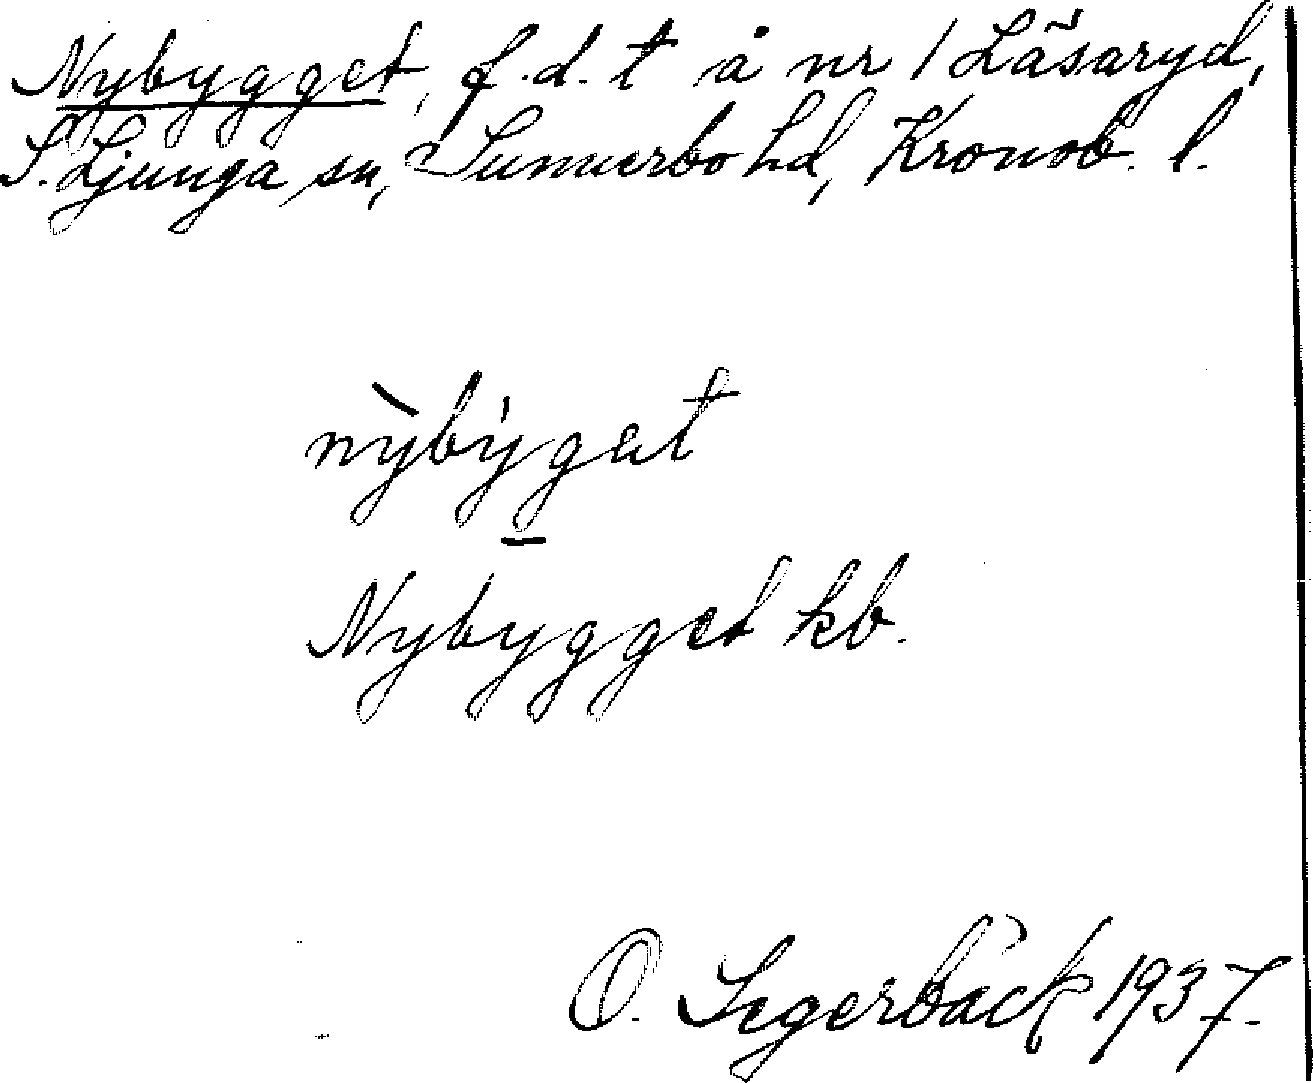 Nybygget, f.d. t å nr 1 Läsaryd,
S. Ljunga sn, Sunnerbo hd, Kronob. l.
nỳbýgat
Nybygget kb.
O. Segerbäck 1937.